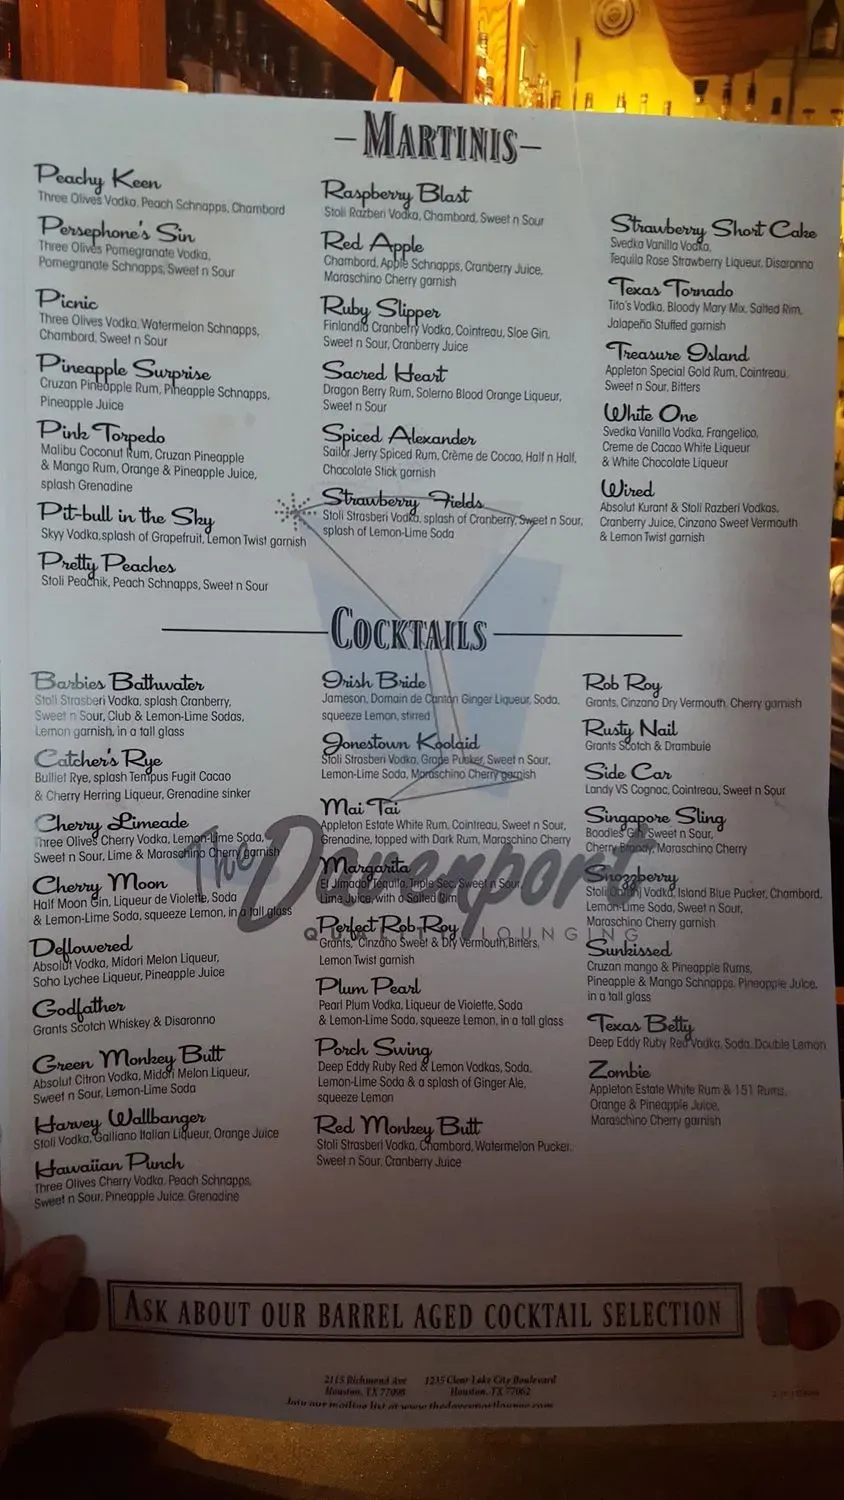 –MARTINIS–
Peachy Keen
Three Olives Vodka, Peach Schnapps, Chambord
Persephone's Sin
Three Olives Pomegranate Vodka,
Pomegranate Schnapps, Sweet n Sour
Picnic
Three Olives Vodka, Watermelon Schnapps,
Chambord, Sweet n Sour
Pineapple Surprise
Cruzan Pineapple Rum, Pineapple Schnapps,
Pineapple Juice
Pink Torpedo
Malibu Coconut Rum, Cruzan Pineapple
& Mango Rum, Orange & Pineapple Juice,
splash Grenadine
Pit-bull in the Sky
Skyy Vodka,splash of Grapefruit, Lemon Twist garnish
Pretty Peaches
Stoli Peachik, Peach Schnapps, Sweet n Sour
Raspberry Blast
Stoli Razberi Vodka, Chambord, Sweet n Sour
Red Apple
Chambord, Apple Schnapps, Cranberry Juice,
Maraschino Cherry garnish
Ruby Slipper
Finlandia Cranberry Vodka, Cointreau, Sloe Gin,
Sweet n Sour, Cranberry Juice
Sacred Heart
Dragon Berry Rum, Solerno Blood Orange Liqueur,
Sweet n Sour
Spiced Alexander
Sailor Jerry Spiced Rum, Crème de Cocao, Half n Half,
Chocolate Stick garnish
Strawberry Fields
Stoli Strasberi Vodka, splash of Cranberry, Sweet n Sour,
splash of Lemon-Lime Soda
Strawberry Short Cake
Svedka Vanilla Vodka,
Tequila Rose Strawberry Liqueur, Disaronno
Texas Tornado
Tito's Vodka, Bloody Mary Mix, Salted Rim,
Jalapeño Stuffed garnish
Treasure Island
Appleton Special Gold Rum, Cointreau,
Sweet n Sour, Bitters
White One
Svedka Vanilla Vodka, Frangelico,
Creme de Cacao White Liqueur
& White Chocolate Liqueur
Wired
Absolut Kurant & Stoli Razberi Vodkas,
Cranberry Juice, Cinzano Sweet Vermouth
& Lemon Twist garnish
COCKTAILS
Barbies Bathwater
Stoli Strasberi Vodka, splash Cranberry,
Sweet n Sour, Club & Lemon-Lime Sodas,
Lemon garnish, in a tall glass
Catcher's Rye
Bulliet Rye, splash Tempus Fugit Cacao
& Cherry Herring Liqueur, Grenadine sinker
Cherry Limeade
Three Olives Cherry Vodka, Lemon-Lime Soda,
Sweet n Sour, Lime & Maraschino Cherry garnish
Cherry Moon
Half Moon Gin, Liqueur de Violette, Soda
& Lemon-Lime Soda, squeeze Lemon, in a tall glass
Deflowered
Absolut Vodka, Midori Melon Liqueur,
Soho Lychee Liqueur, Pineapple Juice
Godfather
Grants Scotch Whiskey & Disaronno
Green Monkey Butt
Absolut Citron Vodka, Midori Melon Liqueur,
Sweet n Sour, Lemon-Lime Soda
Harvey Wallbanger
Stoli Vodka, Galliano Italian Liqueur, Orange Juice
Hawaiian Punch
Three Olives Cherry Vodka, Peach Schnapps,
Sweet n Sour, Pineapple Juice, Grenadine
Irish Bride
Jameson, Domain de Canton Ginger Liqueur, Soda,
squeeze Lemon, stirred
Jonestown Koolaid
Stoli Strasberi Vodka, Grape Pucker, Sweet n Sour,
Lemon-Lime Soda, Maraschino Cherry garnish
Mai Tai
Appleton Estate White Rum, Cointreau, Sweet n Sour,
Grenadine, topped with Dark Rum, Maraschino Cherry
Margarita
El Jimador Tequila, Triple Sec, Sweet n Sour,
Lime Juice, with a Salted Rim
Perfect Rob Roy
Grants, Cinzano Sweet & Dry Vermouth,Bitters,
Lemon Twist garnish
Plum Pearl
Pearl Plum Vodka, Liqueur de Violette, Soda
& Lemon-Lime Soda, squeeze Lemon, in a tall glass
Porch Swing
Deep Eddy Ruby Red & Lemon Vodkas, Soda,
Lemon-Lime Soda & a splash of Ginger Ale,
squeeze Lemon
Red Monkey Butt
Stoli Strasberi Vodka, Chambord, Watermelon Pucker,
Sweet n Sour, Cranberry Juice
Rob Roy
Grants, Cinzano Dry Vermouth, Cherry garnish
Rusty Nail
Grants Scotch & Drambuie
Side Car
Landy VS Cognac, Cointreau, Sweet n Sour
Singapore Sling
Boodles Gin, Sweet n Sour,
Cherry Brandy, Maraschino Cherry
Snozzberry
Stoli Vodka, Island Blue Pucker, Chambord,
Lemon-Lime Soda, Sweet n Sour,
Maraschino Cherry garnish
Sunkissed
Cruzan mango & Pineapple Rums,
Pineapple & Mango Schnapps, Pineapple Juice,
in a tall glass
Texas Betty
Deep Eddy Ruby Red Vodka, Soda, Double Lemon
Zombie
Appleton Estate White Rum & 151 Rums,
Orange & Pineapple Juice,
Maraschino Cherry garnish
The Davenport
QUALITY LOUNGING
ASK ABOUT OUR BARREL AGED COCKTAIL SELECTION
2115 Richmond Ave
Houston, TX 77098
1235 Clear Lake City Boulevard
Houston, TX 77062
Join our mailing list at www.thedavenportlounge.com